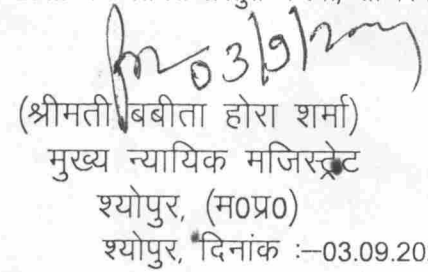 03/9/
(श्रीमती बबीता होरा शर्मा)
मुख्य न्यायिक मजिस्ट्रेट
श्योपुर, (म0प्र0)
श्योपुर, दिनांक :–03.09.20